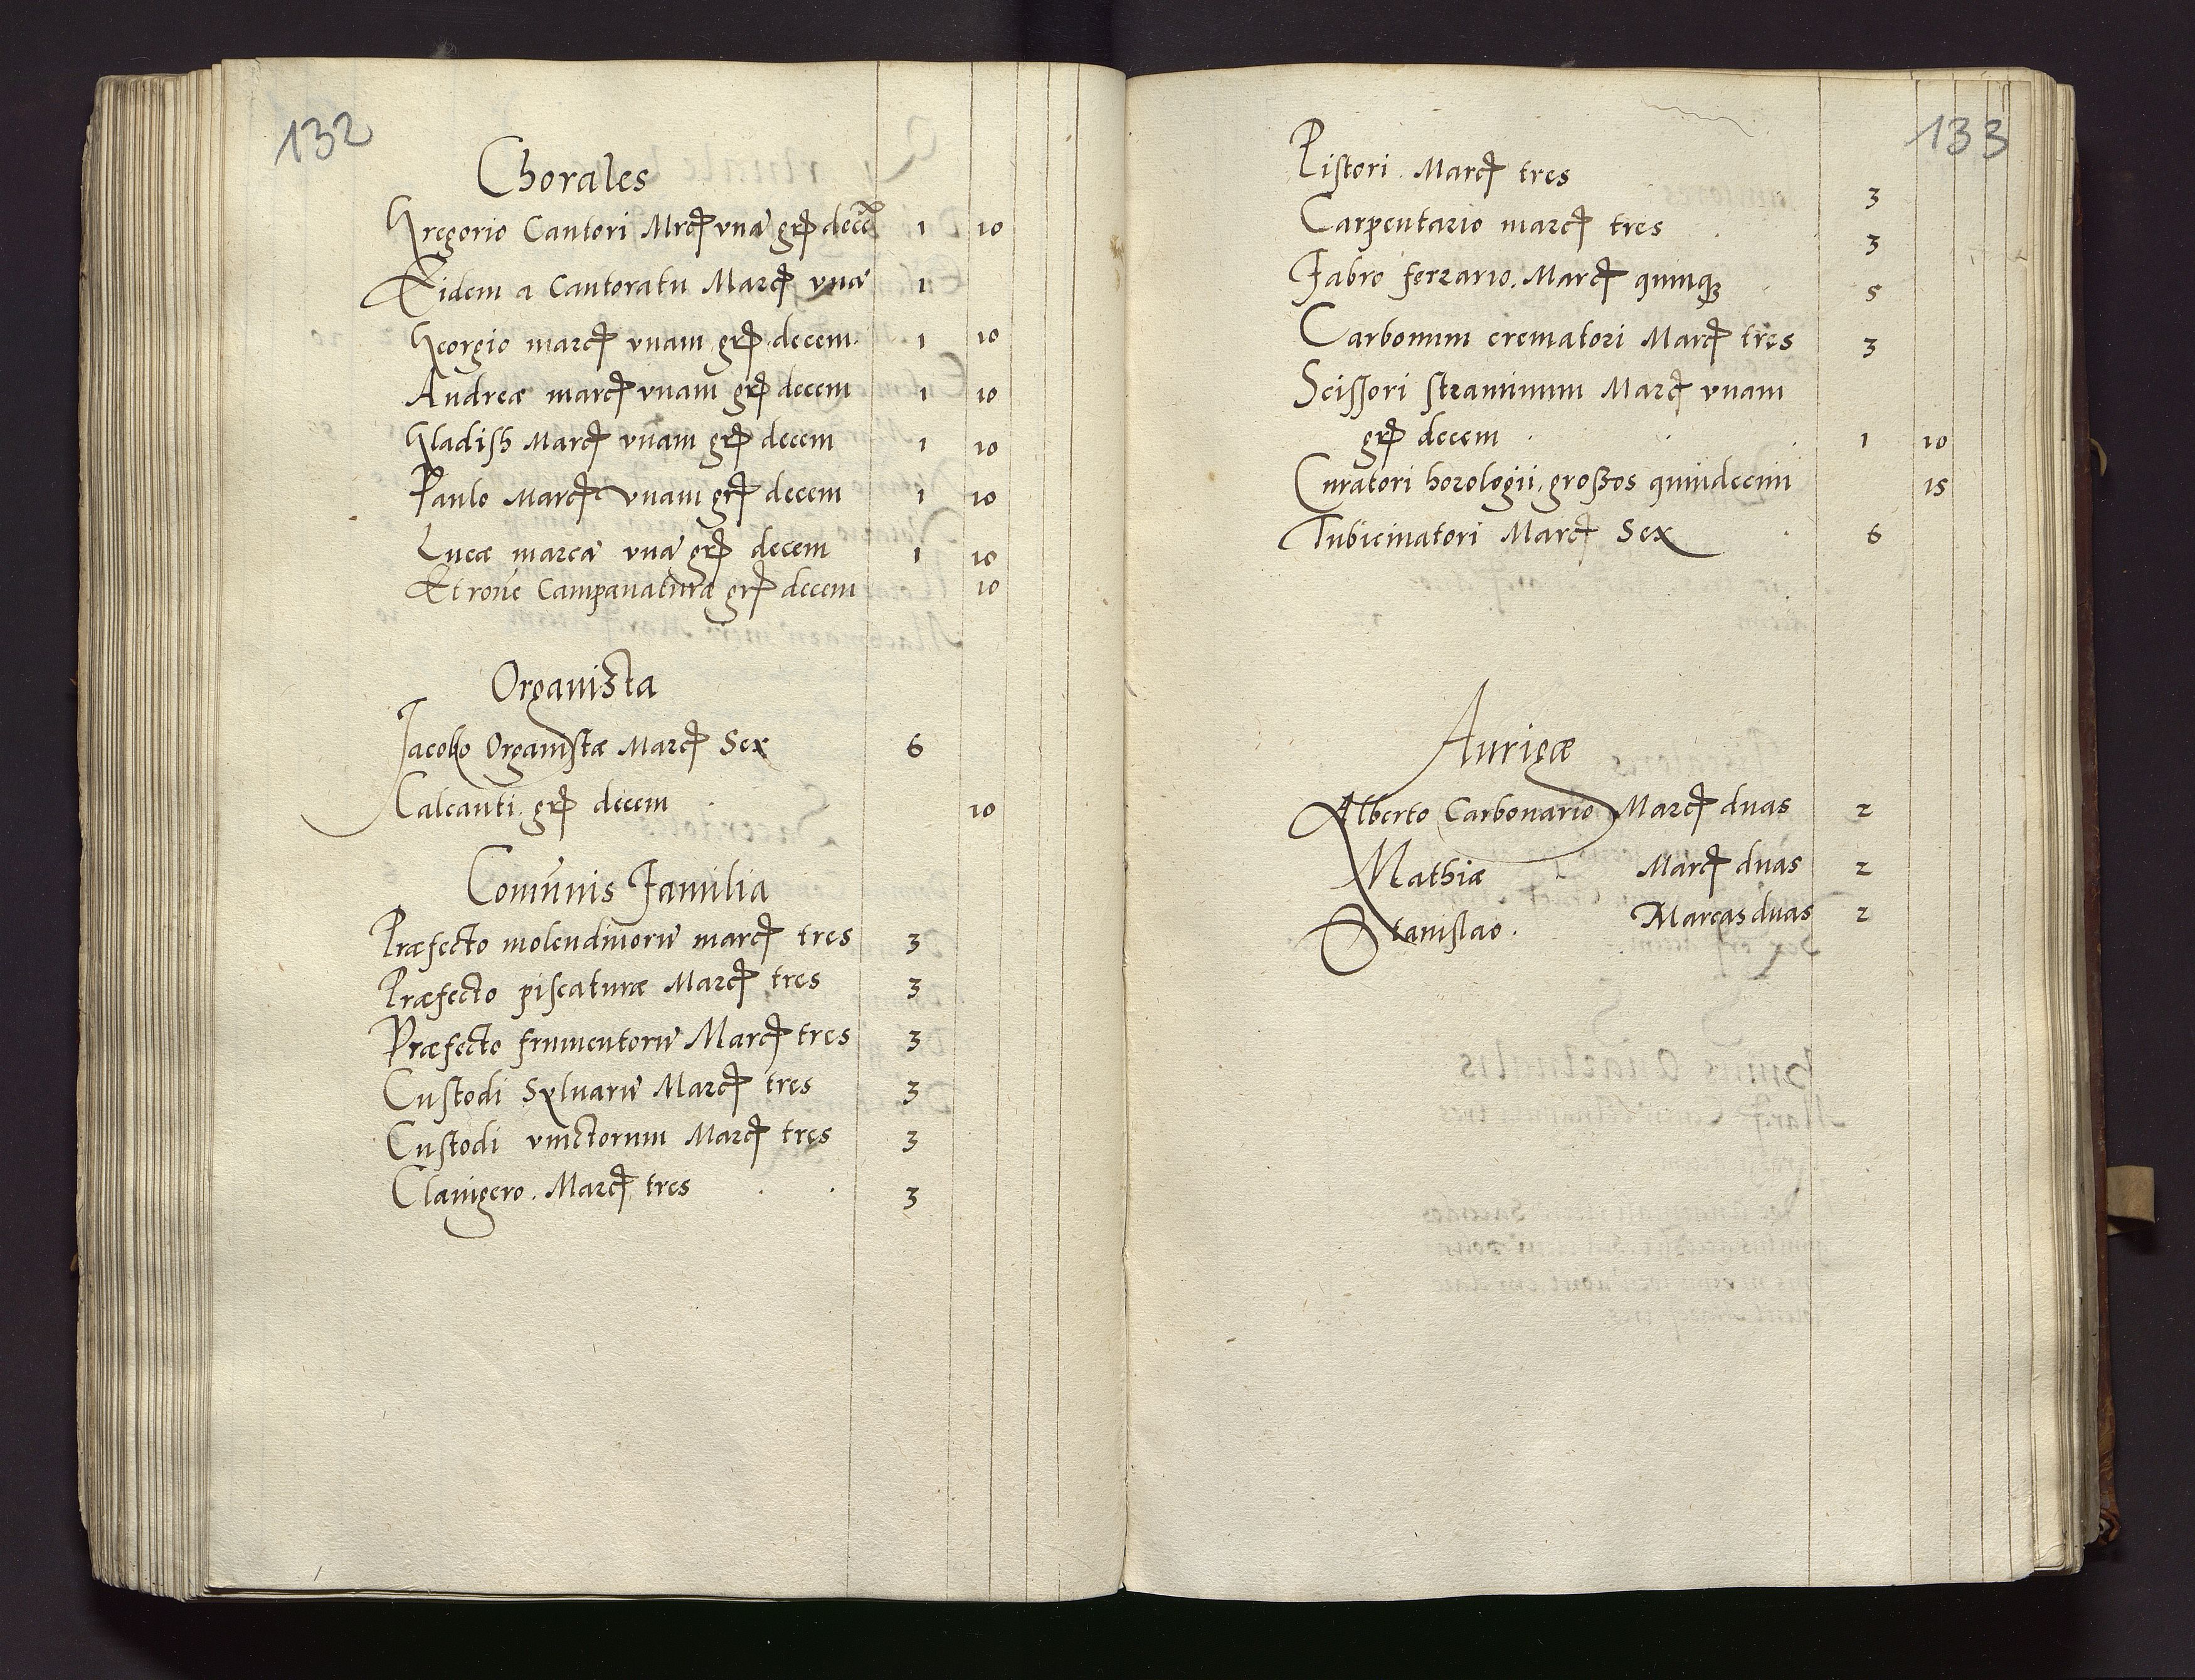 132
Chorales
Gregorio Cantori Mrcꝭ vnā grꝭ decē 1 10
Eidem a Cantoratu Marcꝭ vnā 1
Georgio marcꝭ vnam grꝭ decem 1 10
Andreæ marcꝭ vnam grꝭ decem 1 10
Gladish Marcꝭ vnam grꝭ decem 1 10
Paulo Marcꝭ vnam grꝭ decem 1 10
Lucæ marcā vnā grꝭ decem 1 10
Et rōne Campanaturæ grꝭ decem 10
Organista
Jacobo Organistæ Marcꝭ Sex 6
Calcanti grꝭ decem 10
Comūnis Familia
Præfecto molendinorū marcꝭ tres 3
Præfecto piscaturæ Marcꝭ tres 3
Præfecto frumentorū Marcꝭ tres 3
Custodi Sylvarū Marcꝭ tres 3
Custodi vinctorum Marcꝭ tres 3
Clauigero. Marcꝭ tres 3
133
Pistori Marcꝭ tres 3
Carpentario marcꝭ tres 3
Fabro ferrario. Marcꝭ quinqꝫ 5
Carbonum crematori Marcꝭ tres 3
Scissori straminum Marcꝭ vnam
grꝭ decem 1 10
Curatori horologii großos quindecim 15
Tubicinatori Marcꝭ Sex 6
Aurigæ
Alberto Carbonario Marcꝭ duas 2
Mathiæ Marcꝭ duas 2
Stanislao. Marcas duas 2